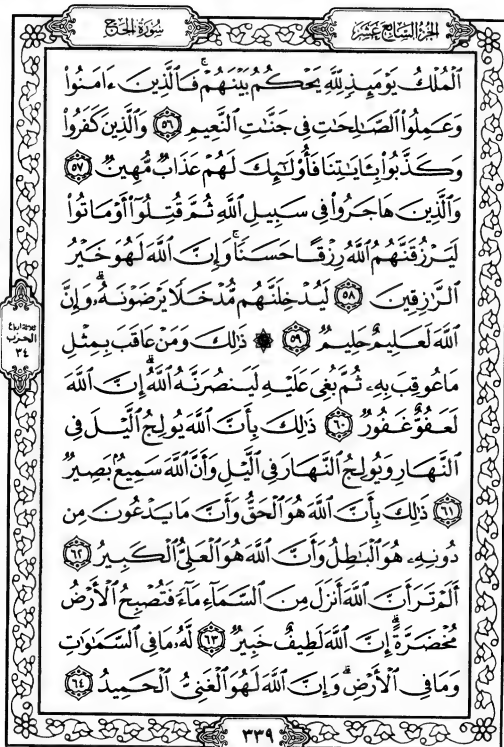 الجزء السابع عشر
سورة الحج
ٱلْمُلْكُ يَوْمَئِذٍ لِّلَّهِ يَحْكُمُ بَيْنَهُمْ ۚ فَٱلَّذِينَ ءَامَنُوا۟
وَعَمِلُوا۟ ٱلصَّـٰلِحَـٰتِ فِى جَنَّـٰتِ ٱلنَّعِيمِ ٥٦ وَٱلَّذِينَ كَفَرُوا۟
وَكَذَّبُوا۟ بِـَٔايَـٰتِنَا فَأُو۟لَـٰٓئِكَ لَهُمْ عَذَابٌ مُّهِينٌ ٥٧
وَٱلَّذِينَ هَاجَرُوا۟ فِى سَبِيلِ ٱللَّهِ ثُمَّ قُتِلُوٓا۟ أَوْ مَاتُوا۟
لَيَرْزُقَنَّهُمُ ٱللَّهُ رِزْقًا حَسَنًا ۚ وَإِنَّ ٱللَّهَ لَهُوَ خَيْرُ
ٱلرَّٰزِقِينَ ٥٨ لَيُدْخِلَنَّهُم مُّدْخَلًا يَرْضَوْنَهُۥ ۗ وَإِنَّ
ٱللَّهَ لَعَلِيمٌ حَلِيمٌ ٥٩ ۞ ذَٰلِكَ وَمَنْ عَاقَبَ بِمِثْلِ
مَا عُوقِبَ بِهِۦ ثُمَّ بُغِىَ عَلَيْهِ لَيَنصُرَنَّهُ ٱللَّهُ ۗ إِنَّ ٱللَّهَ
لَعَفُوٌّ غَفُورٌ ٦٠ ذَٰلِكَ بِأَنَّ ٱللَّهَ يُولِجُ ٱلَّيْلَ فِى
ٱلنَّهَارِ وَيُولِجُ ٱلنَّهَارَ فِى ٱلَّيْلِ وَأَنَّ ٱللَّهَ سَمِيعٌۢ بَصِيرٌ
٦١ ذَٰلِكَ بِأَنَّ ٱللَّهَ هُوَ ٱلْحَقُّ وَأَنَّ مَا يَدْعُونَ مِن
دُونِهِۦ هُوَ ٱلْبَـٰطِلُ وَأَنَّ ٱللَّهَ هُوَ ٱلْعَلِىُّ ٱلْكَبِيرُ ٦٢
أَلَمْ تَرَ أَنَّ ٱللَّهَ أَنزَلَ مِنَ ٱلسَّمَآءِ مَآءً فَتُصْبِحُ ٱلْأَرْضُ
مُخْضَرَّةً ۗ إِنَّ ٱللَّهَ لَطِيفٌ خَبِيرٌ ٦٣ لَّهُۥ مَا فِى ٱلسَّمَـٰوَٰتِ
وَمَا فِى ٱلْأَرْضِ ۗ وَإِنَّ ٱللَّهَ لَهُوَ ٱلْغَنِىُّ ٱلْحَمِيدُ ٦٤
ثلاثة أرباع
الحزب
٣٤
٣٣٩